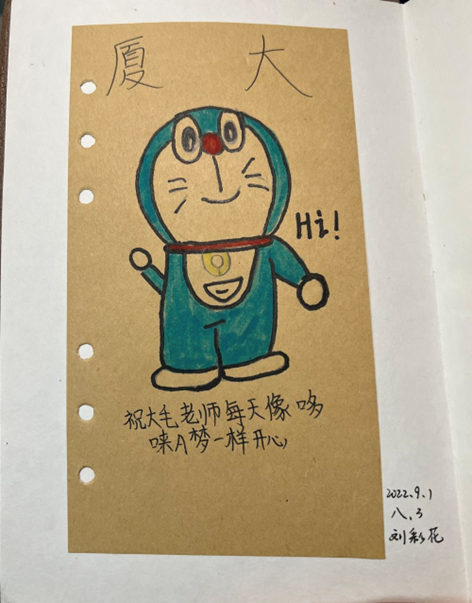 厦 大
Hi!
祝大毛老师每天像哆
唻A梦一样开心
2022.9.1
八.3
刘彩花